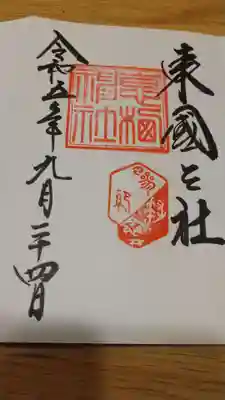 東國三社
息栖
神社
令和五年九月二十四日